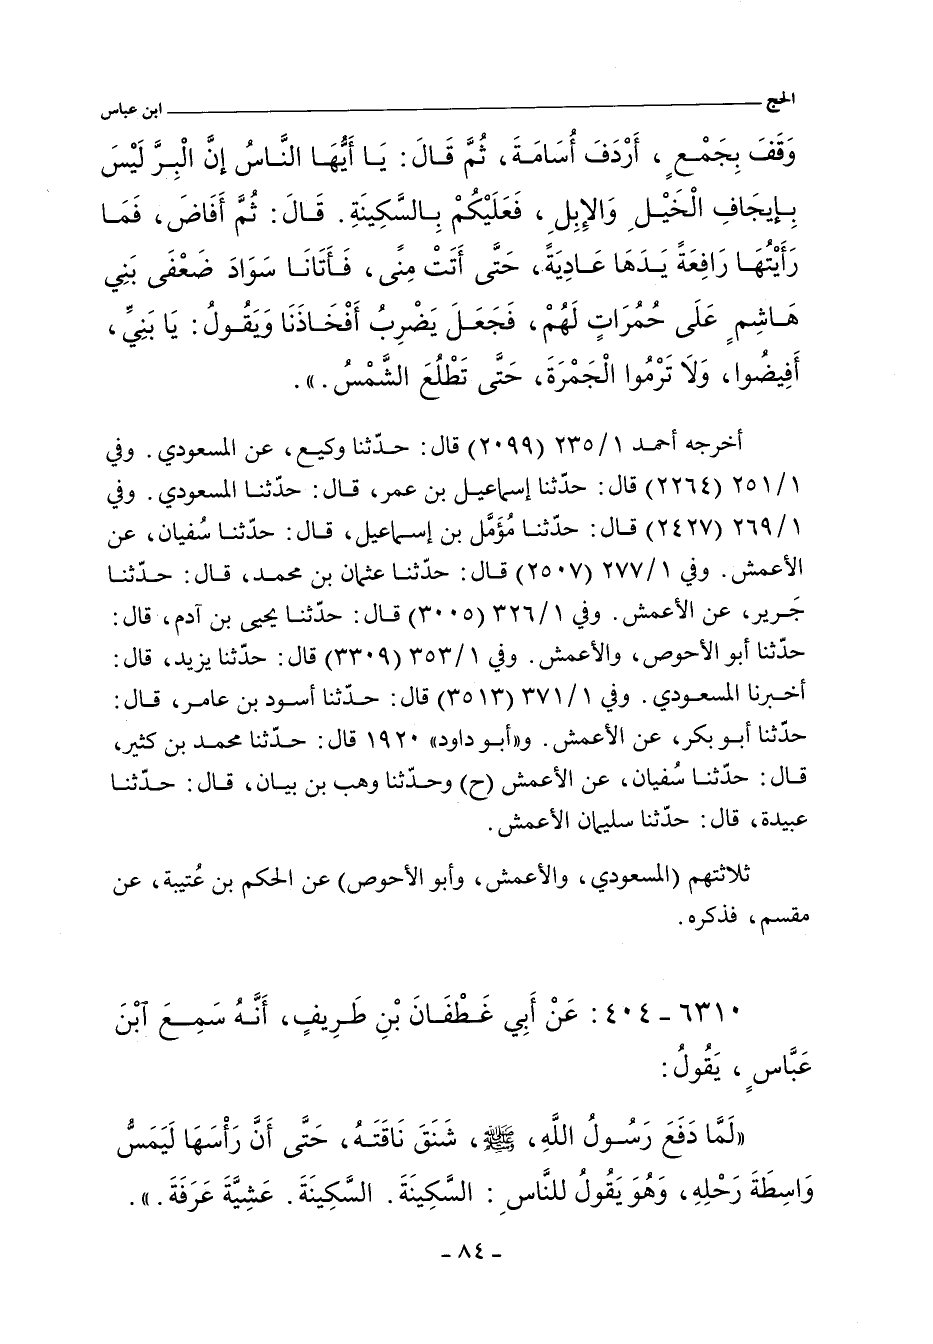 الحج ــــــــــــــــ ابن عباس
وَقَفَ بِجَمْعٍ ، أَرْدَفَ أُسَامَةَ، ثُمَّ قَالَ: يَا أَيُّهَا النَّاسُ إِنَّ الْبِرَّ لَيْسَ
بِإِيجَافِ الْخَيْلِ وَالإِبِلِ ، فَعَلَيْكُمْ بِالسَّكِينَةِ. قَالَ: ثُمَّ أَفَاضَ، فَمَا
رَأَيْتُهَا رَافِعَةً يَدَهَا عَادِيَةً، حَتَّى أَتَتْ مِنًى، فَأَتَانَا سَوَادَ ضَعْفَى بَنِي
هَاشِمٍ عَلَى حُمُرَاتٍ لَهُمْ، فَجَعَلَ يَضْرِبُ أَفْخَاذَنَا وَيَقُولُ: يَا بَنِيَّ ،
أَفِيضُوا، وَلَا تَرْمُوا الْجَمْرَةَ، حَتَّى تَطْلُعَ الشَّمْسُ . ».
أخرجه أحمد ١/ ٢٣٥ (٢٠٩٩) قال: حدّثنا وكيع، عن المسعودي. وفي
١/ ٢٥١ (٢٢٦٤) قال: حدّثنا إسماعيل بن عمر، قال: حدّثنا المسعودي. وفي
١/ ٢٦٩ (٢٤٢٧) قال: حدّثنا مُؤَمَّل بن إسماعيل، قال: حدّثنا سُفيان، عن
الأعمش. وفي ١/ ٢٧٧ (٢٥٠٧) قال: حدّثنا عثمان بن محمد، قال: حدّثنا
جَرير، عن الأعمش. وفي ١/ ٣٢٦ (٣٠٠٥) قال: حدّثنا يحيى بن آدم، قال:
حدّثنا أبو الأحوص، والأعمش. وفي ١/ ٣٥٣ (٣٣٠٩) قال: حدّثنا يزيد، قال:
أخبرنا المسعودي. وفي ١/ ٣٧١ (٣٥١٣) قال: حدّثنا أسود بن عامر، قال:
حدّثنا أبو بكر، عن الأعمش. و«أبو داود» ١٩٢٠ قال: حدّثنا محمد بن كثير،
قال: حدّثنا سُفيان، عن الأعمش (ح) وحدّثنا وهب بن بيان، قال: حدّثنا
عبيدة، قال: حدّثنا سليمان الأعمش.
ثلاثتهم (المسعودي، والأعمش، وأبو الأحوص) عن الحكم بن عُتيبة، عن
مقسم، فذكره.
٦٣١٠ ـ ٤٠٤: عَنْ أَبِي غَطْفَانَ بْنِ طَرِيفٍ، أَنَّهُ سَمِعَ ٱبْنَ
عَبَّاسٍ ، يَقُولُ:
«لَمَّا دَفَعَ رَسُولُ اللَّهِ، ﷺ، شَنَقَ نَاقَتَهُ، حَتَّى أَنَّ رَأْسَهَا لَيَمَسُّ
وَاسِطَةَ رَحْلِهِ، وَهُوَ يَقُولُ للنَّاسِ : السَّكِينَةَ. السَّكِينَةَ. عَشِيَّةَ عَرَفَةَ. ».
ـ ٨٤ ـ